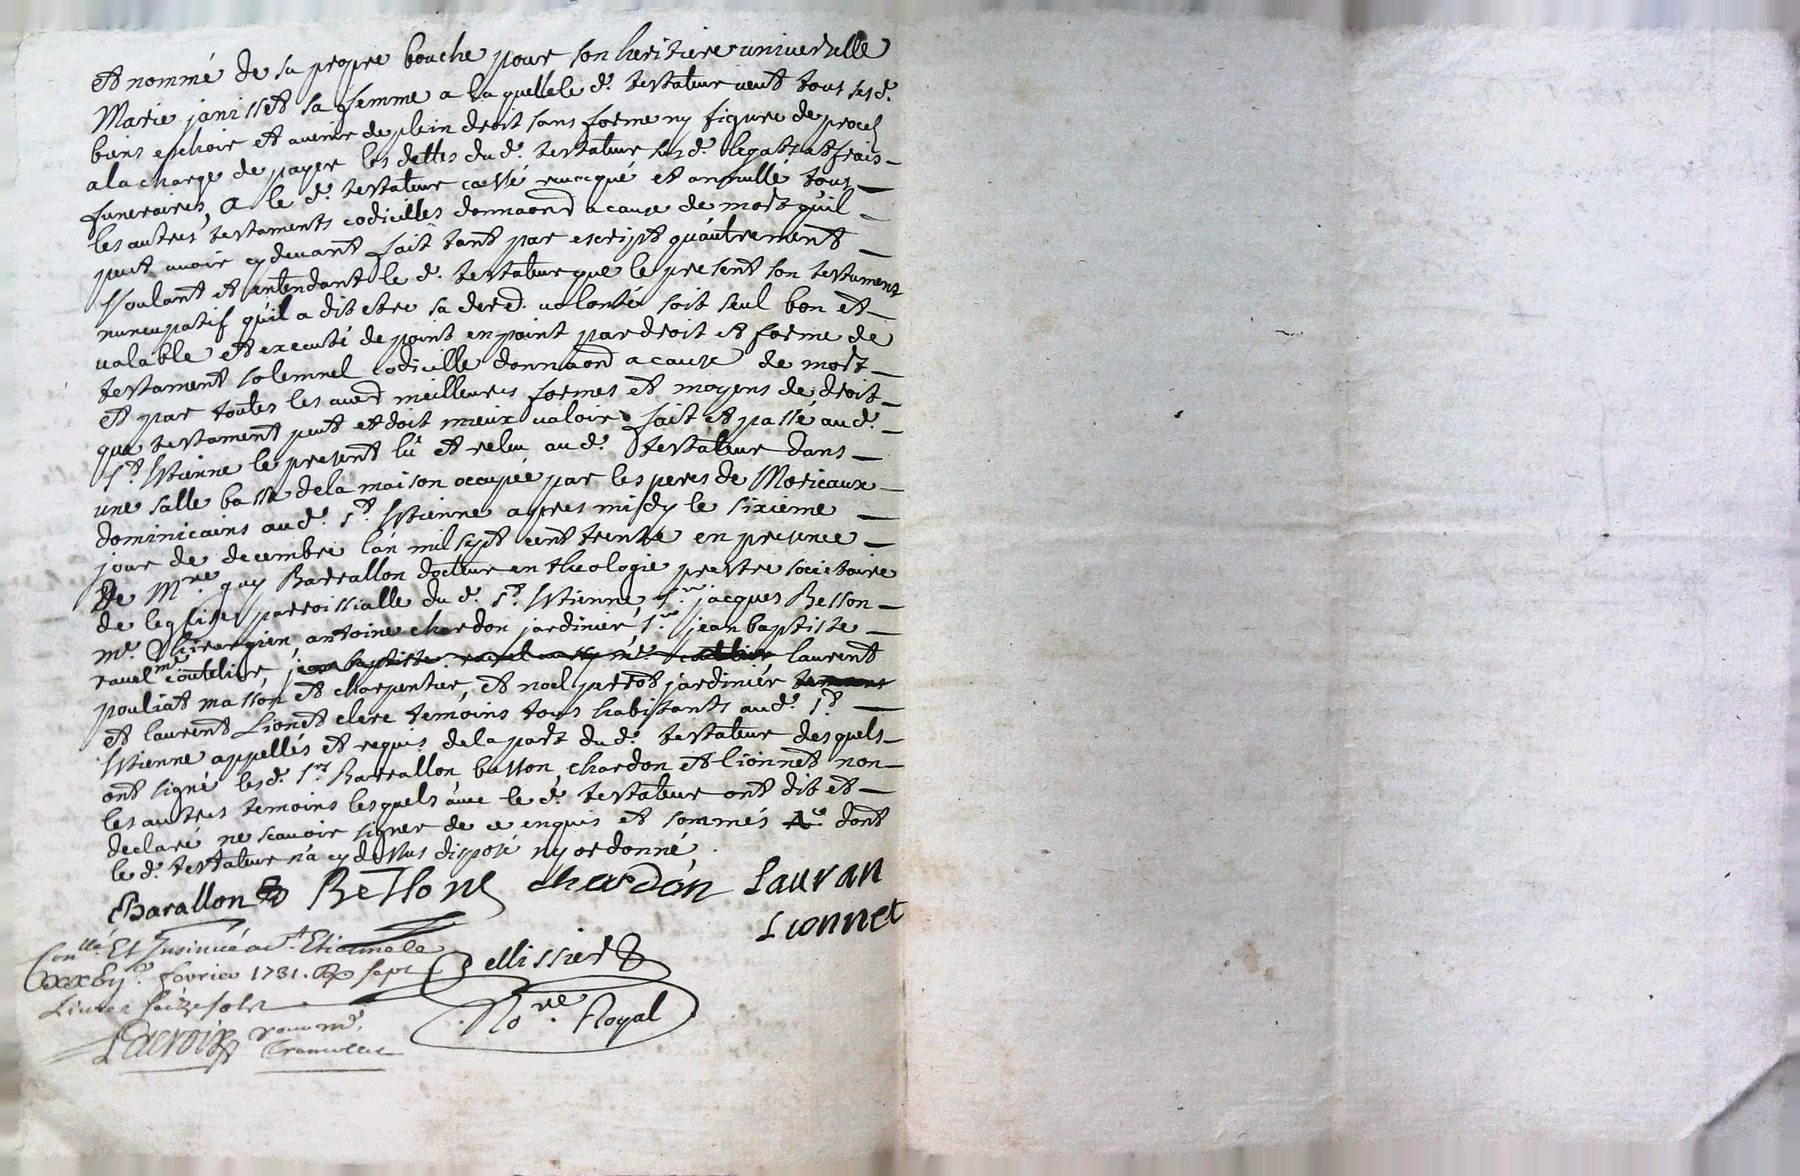 et nommé de sa propre bouche pour son heritiere universelle
Marie janisset sa femme a laquelle le d. testateur veut tous sesd.
biens eschoir et avenir de plein droit sans forme ny figure de proces
a la charge de payer les dettes du d. testateur sesd. legats et frais
funeraires, a le d. testateur cassé revocqué et annulle tous
les autres testaments codicilles donnaond a cause de mort qu'il
peut avoir cy devant fait tant par escript qu'autrement
Voulant et entendant le d. testateur que le present son testament
nuncupatif qu'il a dit etre sa dered. volonté soit seul bon et
valable et executé de point en point par droit et forme de
testament solemnel codicille donnaond a cause de mort
et par toutes les aued meilleures formes et moyens de droit
que testament peut et doit mieux valoir, fait et passé aud.
St. Estienne le present lû et relu aud. testateur dans
une salle basse de la maison occupée par les peres de
dominicains aud. St. Estienne apres midy le sixieme
jour de decembre l'an mil sept cent trente en presence
De Mre. guy Barrallon docteur en theologie prestre societaire
de leglise parroissialle du d. St. Estienne, Sr. jacques Besson
me. Chirurgien antoine chardon jardinier, Sr. jean baptiste
ravel me coutelier, laurent
pouliat masson et charpentier, et noel perrot jardinier
et laurent Lionet clerc temoins tous habitants aud. St.
Estienne appellés et requis de la part du d. testateur desquels
ont signé lesd. Srs. Barrallon besson chardon et lionnet non
les autres temoins lesquels avec le d. testateur ont dit et
declaré ne scavoir signer de ce enquis et sommés dont
le d. testateur n'a cy dessus disposé ny ordonné.
Barallon Besson chardon Lauran
Lionnet
Conllé Et Insinué a St. Etienne le
fevrier 1731. sept
Livres seize sols
Pellissier
Nore. Royal
Lacroix